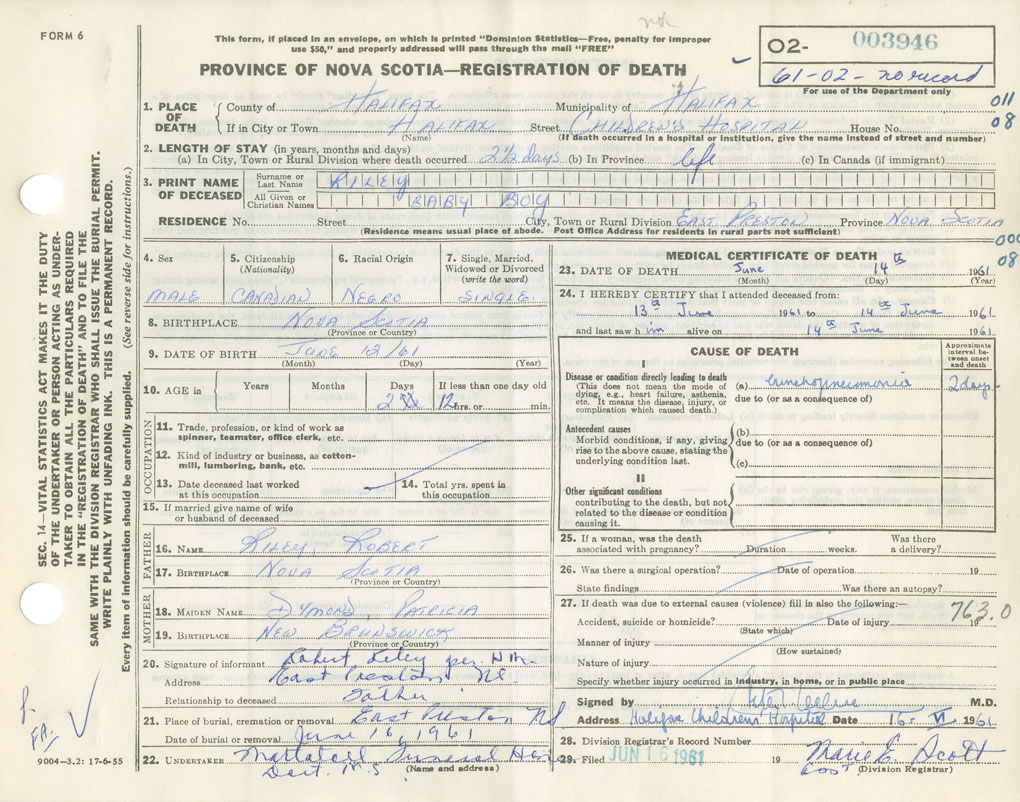 FORM 6
This form, if placed in an envelope, on which is printed "Dominion Statistics—Free, penalty for improper
use $50," and properly addressed will pass through the mail "FREE"
PROVINCE OF NOVA SCOTIA—REGISTRATION OF DEATH
O2- 003946
61-02- no record
For use of the Department only
1. PLACE OF DEATH
County of HALIFAX Municipality of HALIFAX
011
08
If in City or Town HALIFAX Street CHILDREN'S HOSPITAL House No.
(Name) (If death occurred in a hospital or institution, give the name instead of street and number)
2. LENGTH OF STAY (in years, months and days)
(a) In City, Town or Rural Division where death occurred 2½ days (b) In Province life (c) In Canada (if immigrant)
3. PRINT NAME OF DECEASED
Surname or Last Name RILEY
All Given or Christian Names BABY BOY
RESIDENCE No. Street City, Town or Rural Division EAST PRESTON Province NOVA SCOTIA
(Residence means usual place of abode. Post Office Address for residents in rural parts not sufficient)
000
08
4. Sex MALE
5. Citizenship (Nationality) CANADIAN
6. Racial Origin NEGRO
7. Single, Married, Widowed or Divorced (write the word) SINGLE
8. BIRTHPLACE NOVA SCOTIA
(Province or Country)
9. DATE OF BIRTH JUNE 12/61
(Month) (Day) (Year)
10. AGE in Years Months Days If less than one day old
2 12 hrs. or min.
OCCUPATION
11. Trade, profession, or kind of work as
spinner, teamster, office clerk, etc.
12. Kind of industry or business, as cotton-
mill, lumbering, bank, etc.
13. Date deceased last worked at this occupation
14. Total yrs. spent in this occupation
15. If married give name of wife
or husband of deceased
FATHER
16. NAME RILEY, ROBERT
17. BIRTHPLACE NOVA SCOTIA
(Province or Country)
MOTHER
18. MAIDEN NAME DYMOND, PATRICIA
19. BIRTHPLACE NEW BRUNSWICK
(Province or Country)
20. Signature of informant Robert Riley per
Address East Preston NS.
Relationship to deceased Father
21. Place of burial, cremation or removal East Preston NS
Date of burial or removal June 16, 1961
22. UNDERTAKER Funeral Home
Dart. N.S
(Name and address)
MEDICAL CERTIFICATE OF DEATH
23. DATE OF DEATH June 14th 1961
(Month) (Day) (Year)
24. I HEREBY CERTIFY that I attended deceased from:
13th June 1961 to 14th June 1961
and last saw him alive on 14th June 1961
CAUSE OF DEATH
Approximate interval between onset and death
I
Disease or condition directly leading to death
(This does not mean the mode of
dying, e.g., heart failure, asthenia,
etc. It means the disease, injury, or
complication which caused death.)
(a) bronchopneumonia 2 days
due to (or as a consequence of)
Antecedent causes
Morbid conditions, if any, giving
rise to the above cause, stating the
underlying condition last.
(b)
due to (or as a consequence of)
(c)
II
Other significant conditions
contributing to the death, but not
related to the disease or condition
causing it.
25. If a woman, was the death Was there
associated with pregnancy? Duration weeks. a delivery?
26. Was there a surgical operation? Date of operation 19
State findings Was there an autopsy?
27. If death was due to external causes (violence) fill in also the following:—
763.0
Accident, suicide or homicide? Date of injury 19
(State which)
Manner of injury
(How sustained)
Nature of injury
Specify whether injury occurred in industry, in home, or in public place
Signed by M.D.
Address Halifax Childrens' Hospital Date 16. VI. 1961
28. Division Registrar's Record Number
29. Filed JUN 16 1961 19 Marie E. Scott
(Division Registrar)
9004—3.2: 17-6-55
SEC. 14—VITAL STATISTICS ACT MAKES IT THE DUTY
OF THE UNDERTAKER OR PERSON ACTING AS UNDER-
TAKER TO OBTAIN ALL THE PARTICULARS REQUIRED
IN THE "REGISTRATION OF DEATH" AND TO FILE THE
SAME WITH THE DIVISION REGISTRAR WHO SHALL ISSUE THE BURIAL PERMIT.
WRITE PLAINLY WITH UNFADING INK. THIS IS A PERMANENT RECORD.
Every item of information should be carefully supplied. (See reverse side for instructions.)